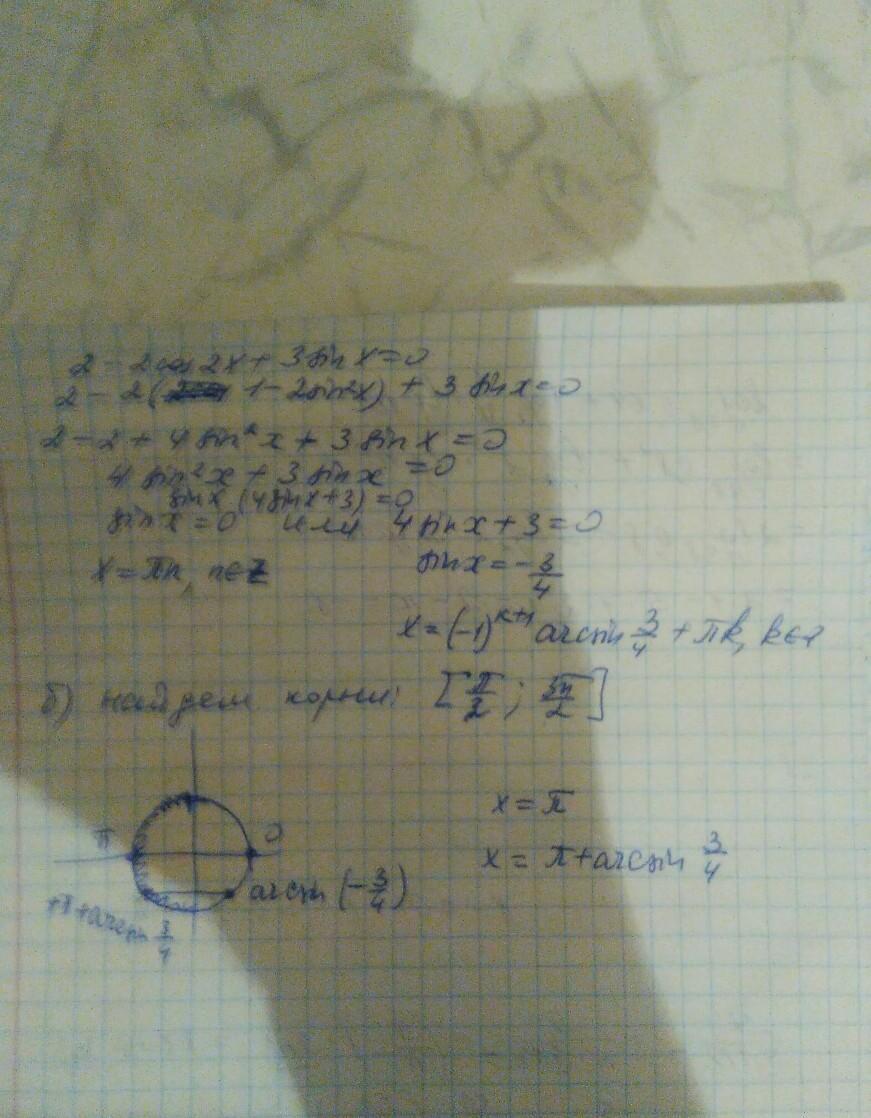 2 - 2cos2x + 3sinx = 0
2 - 2(1 - 2sin²x) + 3sinx = 0
2 - 2 + 4sin²x + 3sinx = 0
4sin²x + 3sinx = 0
sinx (4sinx + 3) = 0
sinx = 0 или 4sinx + 3 = 0
x = πn, n∈Z sinx = -3/4
x = (-1)^(k+1) arcsin 3/4 + πk, k∈z
б) найдем корни: [π/2; 5π/2]
x = π
π 0
x = π + arcsin 3/4
arcsin(-3/4)
π + arcsin 3/4